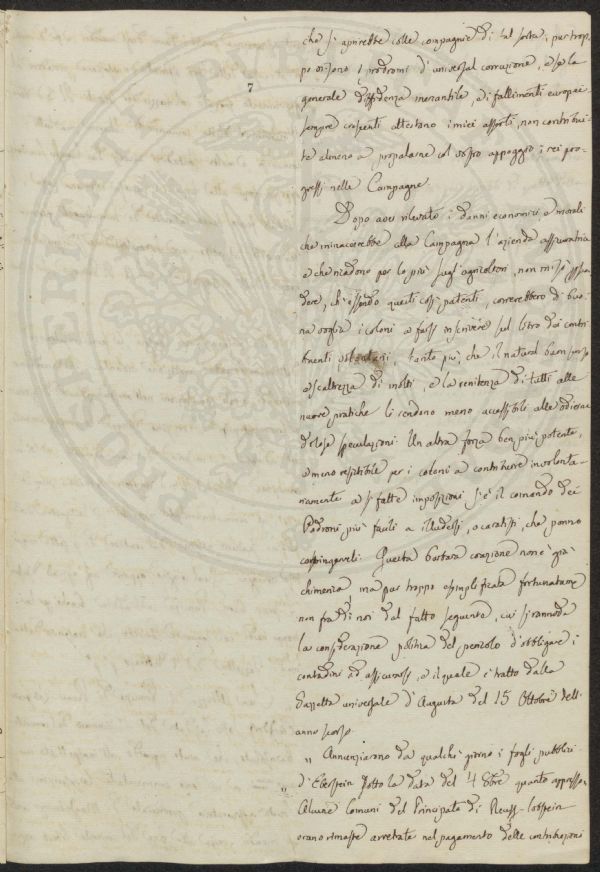 che si aprirebbe colle compagnie di tal sorta; pur trop-
po si sono i prodromi d'universal corruzione, e se la
7
generale diffidenza mercantile, e di fallimenti europei
sempre crescenti attestano i miei asserti, non contribui-
te almeno a propalarne col vostro appoggio i rei pro-
gressi nelle Campagne.
Dopo aver rilevato i danni economici e morali
che minaccerebbe alla Campagna l'azienda assicuratrice
e che ricadono per lo più sugl'agricoltori, non mi si
dere, ch'essendo questi così patenti, correrebbero di buo-
na voglia i coloni a farsi inscrivere sul libro dei contri-
buenti volontarii, tanto più, che il natural buon senso
e scaltrezza di molti, e la renitenza di tutti alle
nuove pratiche li rendono meno accessibili alle odierne
dolose speculazioni. Un altra forza ben più potente,
e meno resistibile per i coloni a contribuire involonta-
riamente a sì fatte imposizioni si è il comando dei
Padroni più facili a illudersi, o caratisti, che ponno
costringerveli. Questa bastara coazione non è già
chimerica, ma pur troppo esemplificata fortunatame
non fra di noi dal fatto seguente, cui si rannoda
la considerazione politica del pericolo d'obbligare i
contadini ad assicurarsi, e il quale è tratto dalla
Gazzetta universale d'Augusta del 15 Ottobre dell'
anno scorso.
„ Annunziarono da qualche giorno i fogli pubblici
„ d'Eberstein sotto la data del 4 8bre quanto appresso.
Alcune Comuni del Principato di Reuss-lobstein
erano rimaste arretrate nel pagamento delle contribuzioni